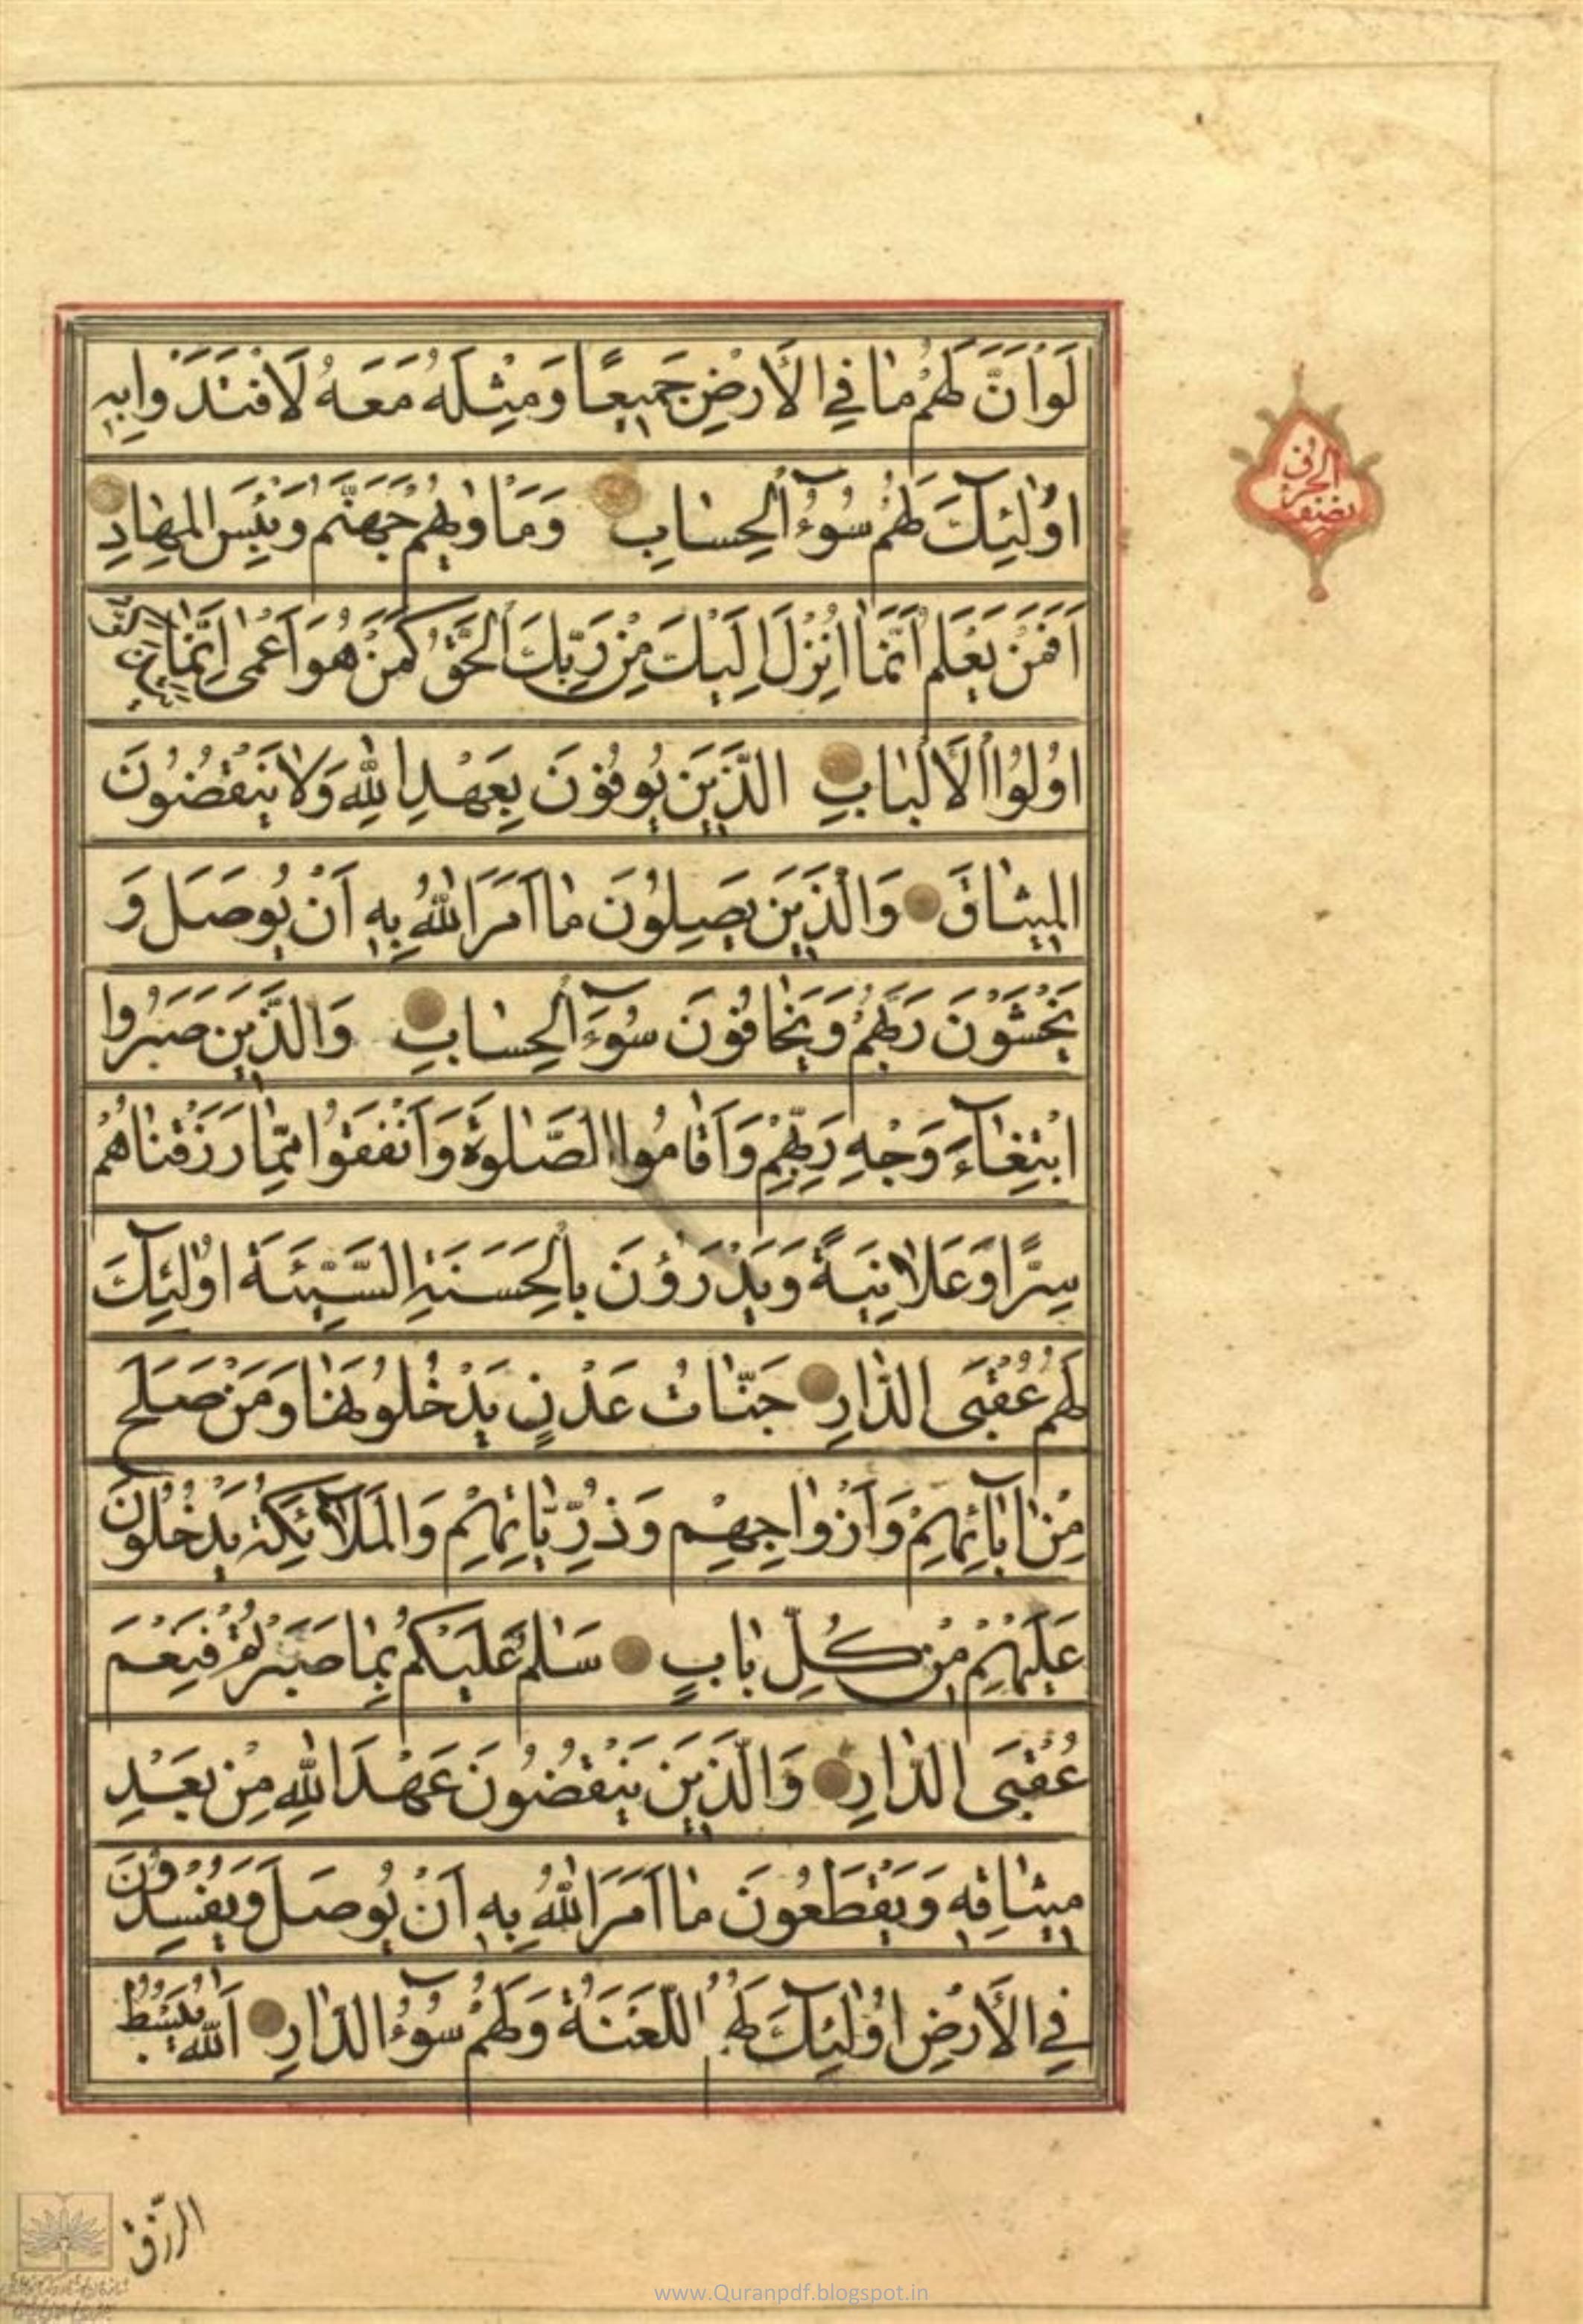 لَوْ اَنَّ لَهُمْ مٰا فِي الْأَرْضِ جَمِيعًا وَمِثْلَهُ مَعَهُ لَافْتَدَوْا بِهِ
اُولٰئِكَ لَهُمْ سُوۤءُ الْحِسٰابِ وَمَأْوٰيهُمْ جَهَنَّمُ وَبِئْسَ الْمِهٰادِ
اَفَمَنْ يَعْلَمُ اَنَّمٰا اُنْزِلَ اِلَيْكَ مِنْ رَبِّكَ الْحَقُّ كَمَنْ هُوَ اَعْمٰى اِنَّمٰا يَتَذَكَّرُ
اُولُوا الْأَلْبٰابِ الَّذِينَ يُوفُونَ بِعَهْدِ اللّٰهِ وَلٰا يَنْقُضُونَ
الْمِيثٰاقَ وَالَّذِينَ يَصِلُونَ مٰا اَمَرَ اللّٰهُ بِهِ اَنْ يُوصَلَ وَ
يَخْشَوْنَ رَبَّهُمْ وَيَخٰافُونَ سُوۤءَ الْحِسٰابِ وَالَّذِينَ صَبَرُوا
ابْتِغٰاۤءَ وَجْهِ رَبِّهِمْ وَاَقٰامُوا الصَّلٰوةَ وَاَنْفَقُوا مِمّٰا رَزَقْنٰاهُمْ
سِرًّا وَعَلٰانِيَةً وَيَدْرَؤُنَ بِالْحَسَنَةِ السَّيِّئَةَ اُولٰئِكَ
لَهُمْ عُقْبَى الدّٰارِ جَنّٰاتُ عَدْنٍ يَدْخُلُونَهٰا وَمَنْ صَلَحَ
مِنْ اٰبٰائِهِمْ وَاَزْوٰاجِهِمْ وَذُرِّيّٰاتِهِمْ وَالْمَلٰائِكَةُ يَدْخُلُونَ
عَلَيْهِمْ مِنْ كُلِّ بٰابٍ سَلٰمٌ عَلَيْكُمْ بِمٰا صَبَرْتُمْ فَنِعْمَ
عُقْبَى الدّٰارِ وَالَّذِينَ يَنْقُضُونَ عَهْدَ اللّٰهِ مِنْ بَعْدِ
مِيثٰاقِهِ وَيَقْطَعُونَ مٰا اَمَرَ اللّٰهُ بِهِ اَنْ يُوصَلَ وَيُفْسِدُونَ
فِي الْأَرْضِ اُولٰئِكَ لَهُمُ اللَّعْنَةُ وَلَهُمْ سُوۤءُ الدّٰارِ اَللّٰهُ يَبْسُطُ
الرِّزْقَ
www.Quranpdf.blogspot.in